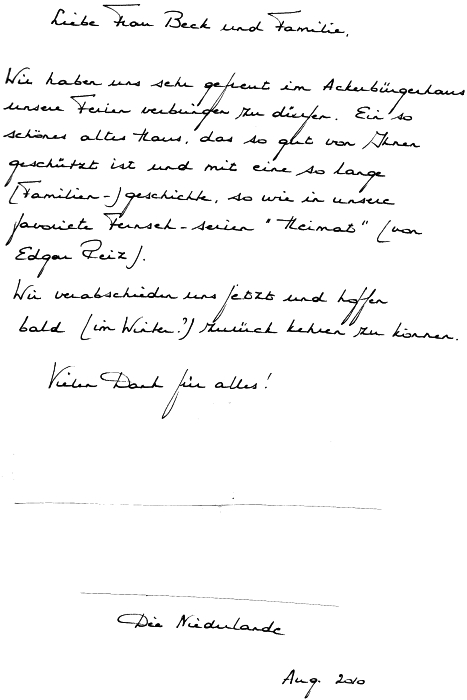 Liebe Frau Beck und Familie,
Wir haben uns sehr gefreut im Ackerbürgerhaus
unsere Ferien verbringen zu dürfen. Ein so
schönes altes Haus, das so gut von Ihnen
geschützt ist und mit eine so lange
(Familien-) geschichte, so wie in unsere
favoriete Fernseh-serien "Heimat" (von
Edgar Reiz).
Wir verabschieden uns jetzt und hoffen
bald (im Winter?) zurück kehren zu können.
Vielen Dank für alles!
Die Niederlande
Aug. 2010